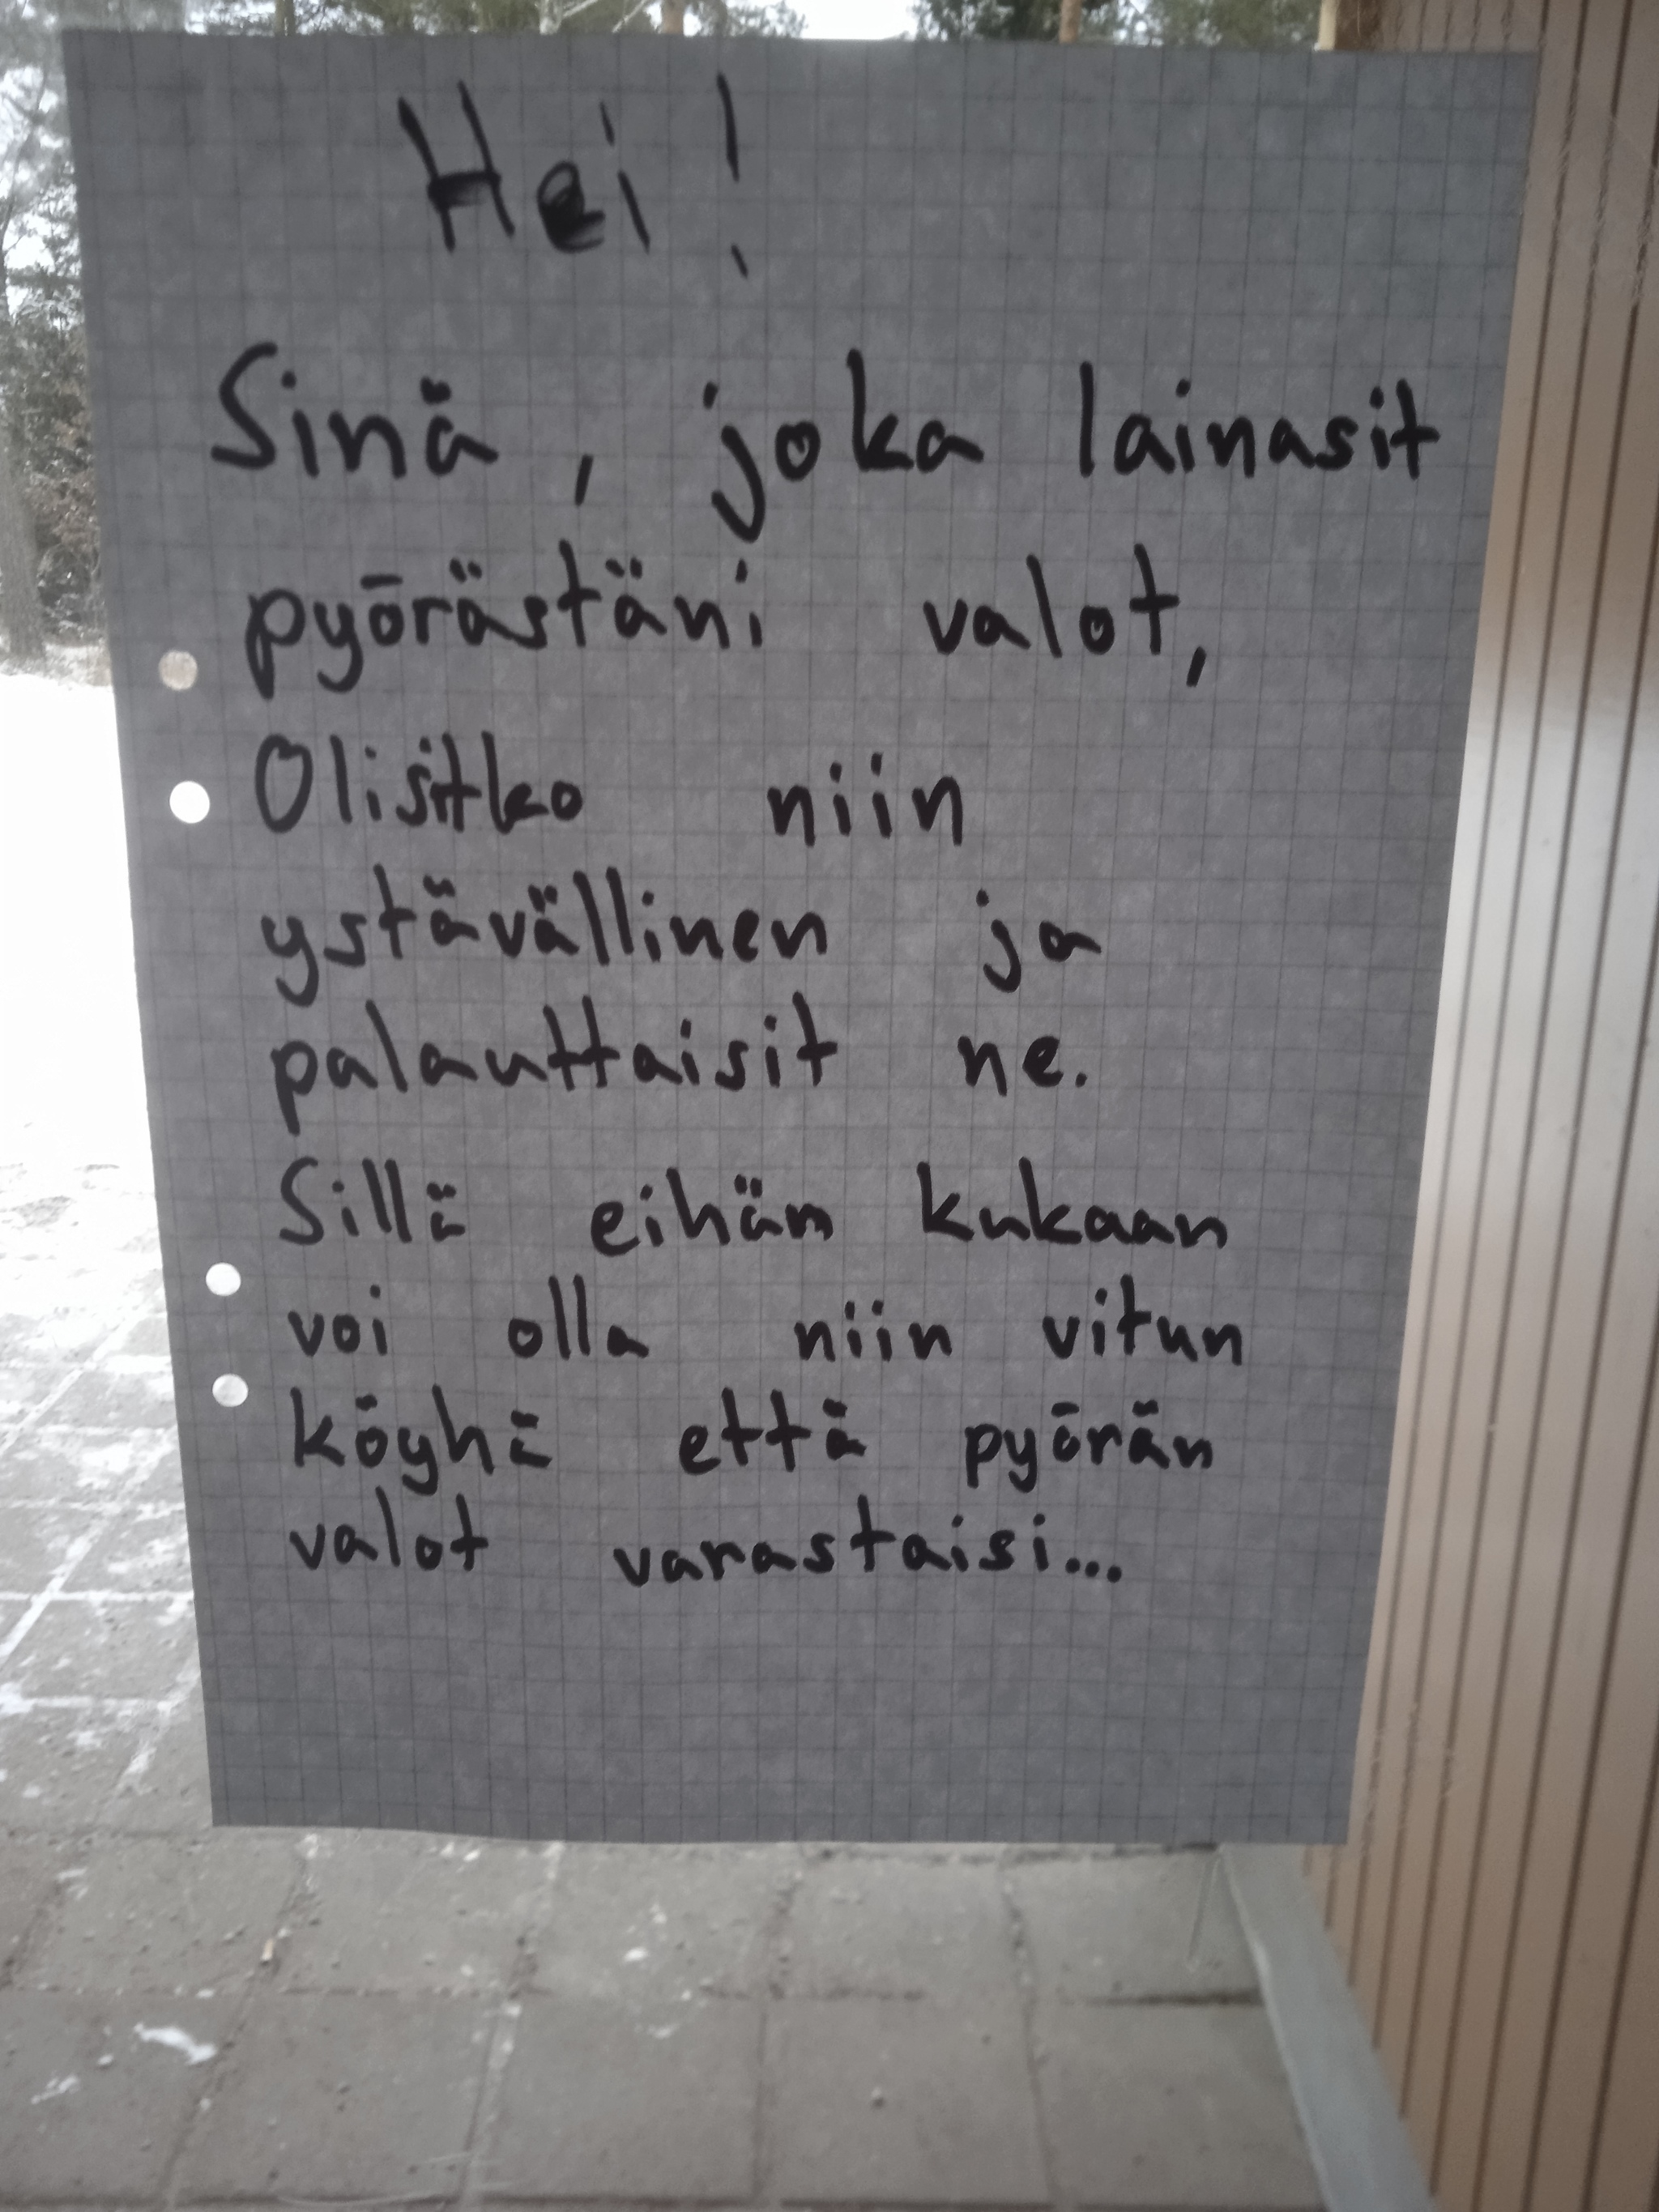 Hei!
Sinä, joka lainasit
pyörästäni valot,
Olisitko niin
ystävällinen ja
palauttaisit ne.
Sillä eihän kukaan
voi olla niin vitun
köyhä että pyörän
valot varastaisi...